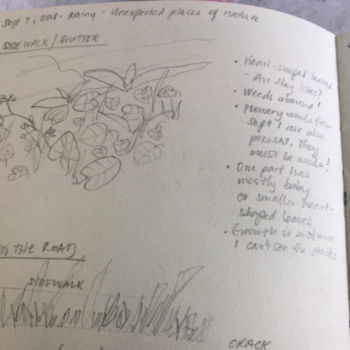 Sept 7, 2018 · Rainy · Unexpected places of nature
SIDEWALK / GUTTER
· Heart-shaped leaves
- Are they lilies?
· Weeds abound!
· Flowery weeds from
Sept 1 are also
present. They
must be weeds!
· One part has
mostly baby
or smaller heart-
shaped leaves
· Growth is so dense
I can't see the stalks.
(IN THE ROAD)
SIDEWALK
CRACK